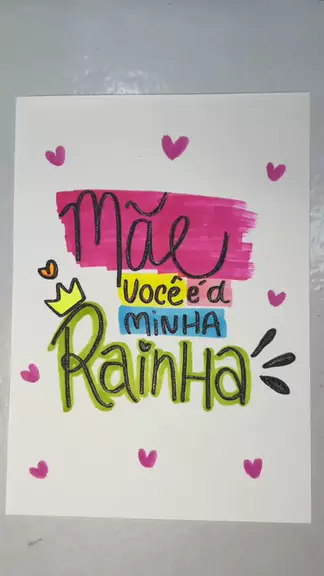 Mãe
Você é a
Minha
Rainha